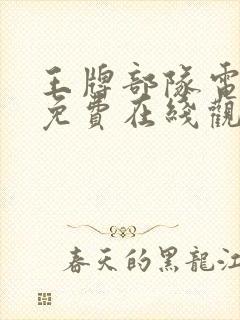 王牌部隊電
免費在綫觀
春天的黑龍江